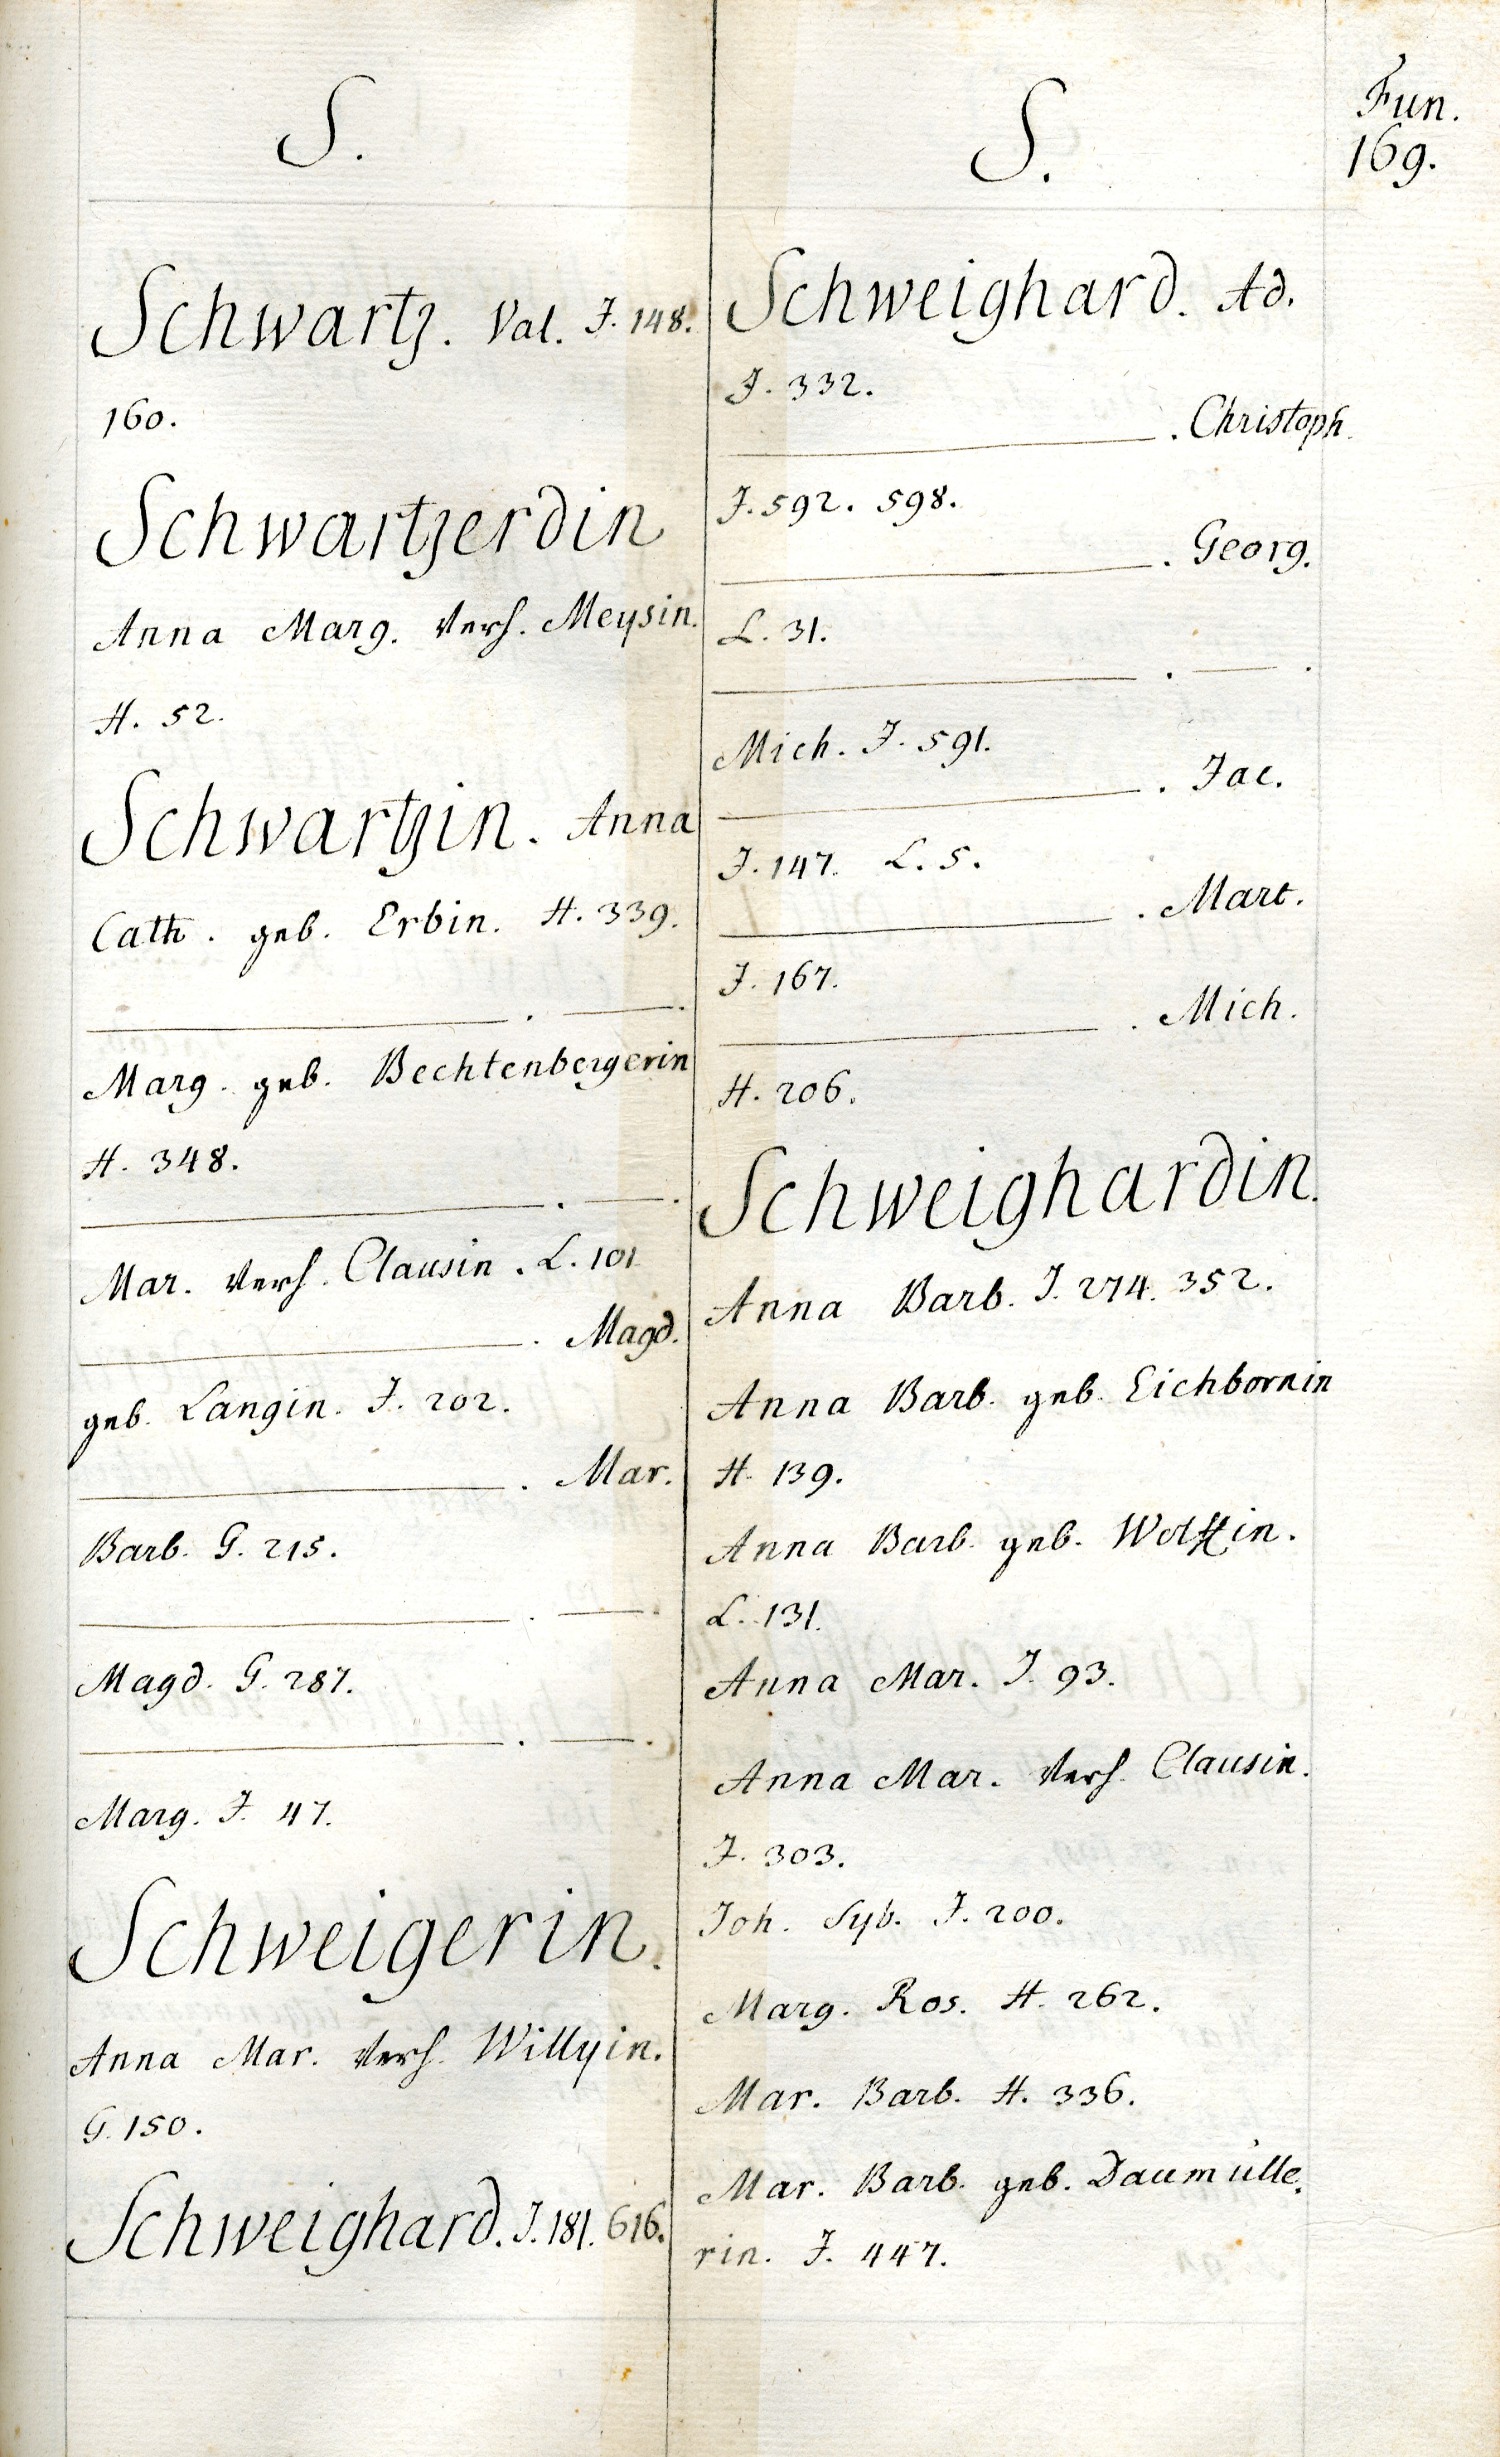 Fun.
169.
S.
Schwartz. Val. J. 148.
160.
Schwartzerdin
Anna Marg. verh. Meysin.
H. 52.
Schwartzin. Anna
Cath. geb. Erbin. H. 339.
———. ———.
Marg. geb. Bechtenbergerin
H. 348.
———. ———.
Mar. verh. Clausin. L. 101
———. Magd.
geb. Langin. J. 202.
———. Mar.
Barb. G. 215.
———. ———.
Magd. G. 287.
———. ———.
Marg. J. 47.
Schweigerin.
Anna Mar. verh. Willyin.
G. 150.
Schweighard. J. 181. 616.
S.
Schweighard. Ad.
J. 332.
———. Christoph.
J. 592. 598.
———. Georg.
L. 31.
———. ———.
Mich. J. 591.
———. Jac.
J. 147. L. 5.
———. Mart.
J. 167.
———. Mich.
H. 206.
Schweighardin.
Anna Barb. J. 274. 352.
Anna Barb. geb. Eichbornin
H. 139.
Anna Barb. geb.
L. 131.
Anna Mar. J. 93.
Anna Mar. verh. Clausin.
J. 303.
Joh. Syb. J. 200.
Marg. Ros. H. 262.
Mar. Barb. H. 336.
Mar. Barb. geb. Daumülle-
rin. J. 447.